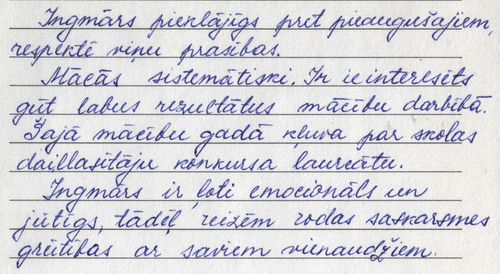 Ingmārs pieklājīgs pret pieaugušajiem,
respektē viņu prasības.
Mācās sistemātiski. Ir ieinteresēts
gūt labus rezultātus mācību darbībā.
Šajā mācību gadā kļuva par skolas
daiļlasītāju konkursa laureātu.
Ingmārs ir ļoti emocionāls un
jūtīgs, tādēļ reizēm rodas saskarsmes
grūtības ar saviem vienaudžiem.